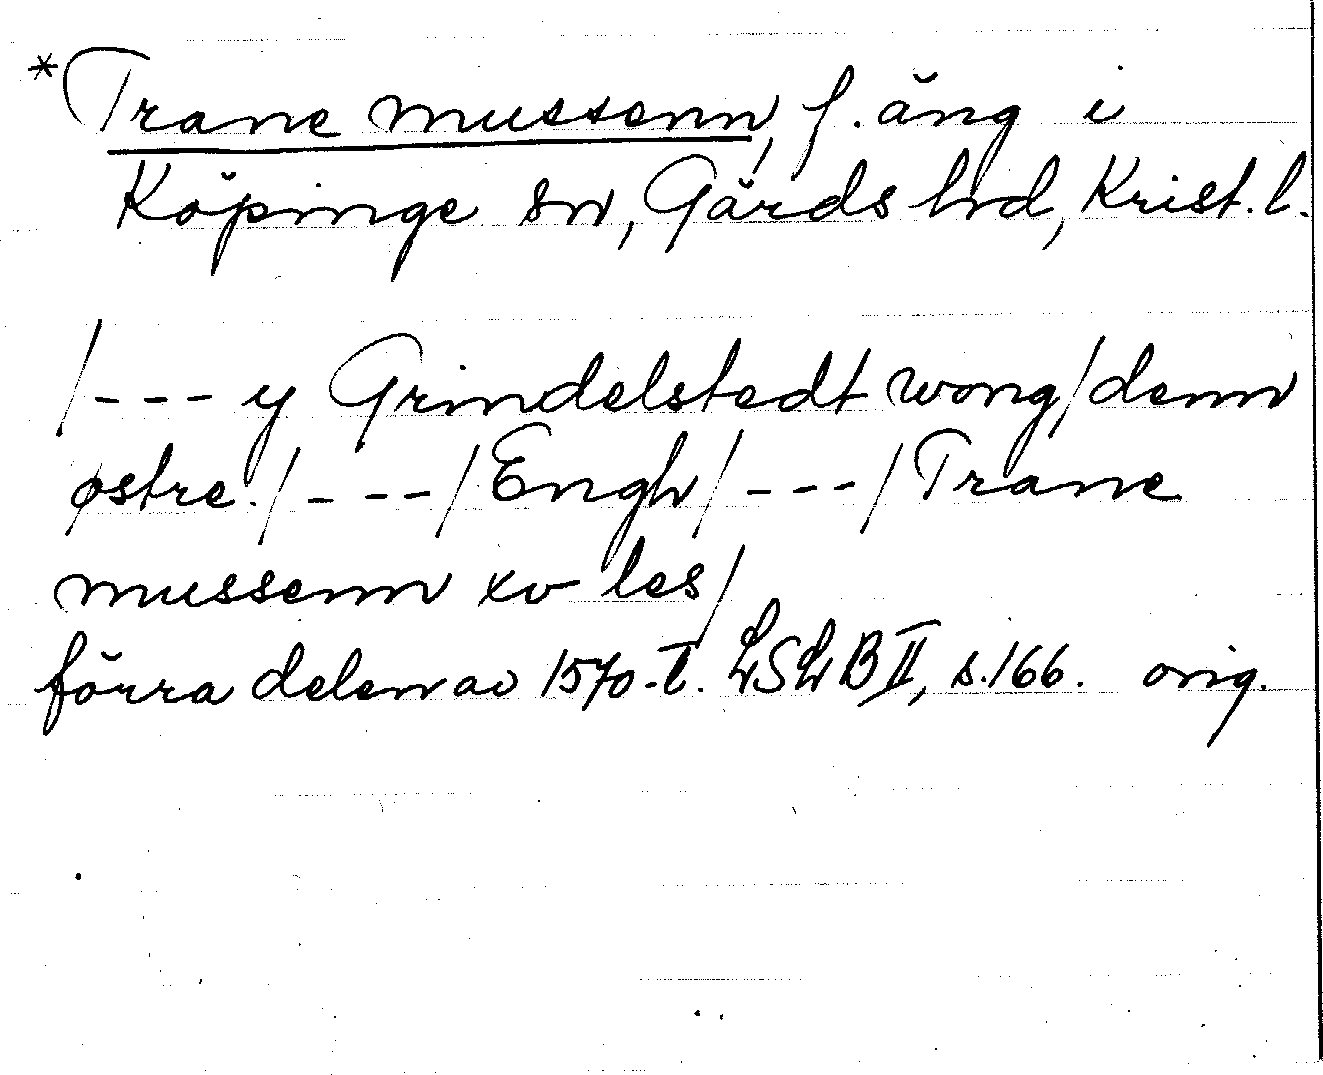 *Trane mussenn, f. äng i
Köpinge sn, Gärds hd, Krist. l.
/--- y Grindelstedt wong/denn
østre./---/Engh/---/Trane
mussenn xv les/
förra delen av 1570-t. LSLB II, s. 166. orig.